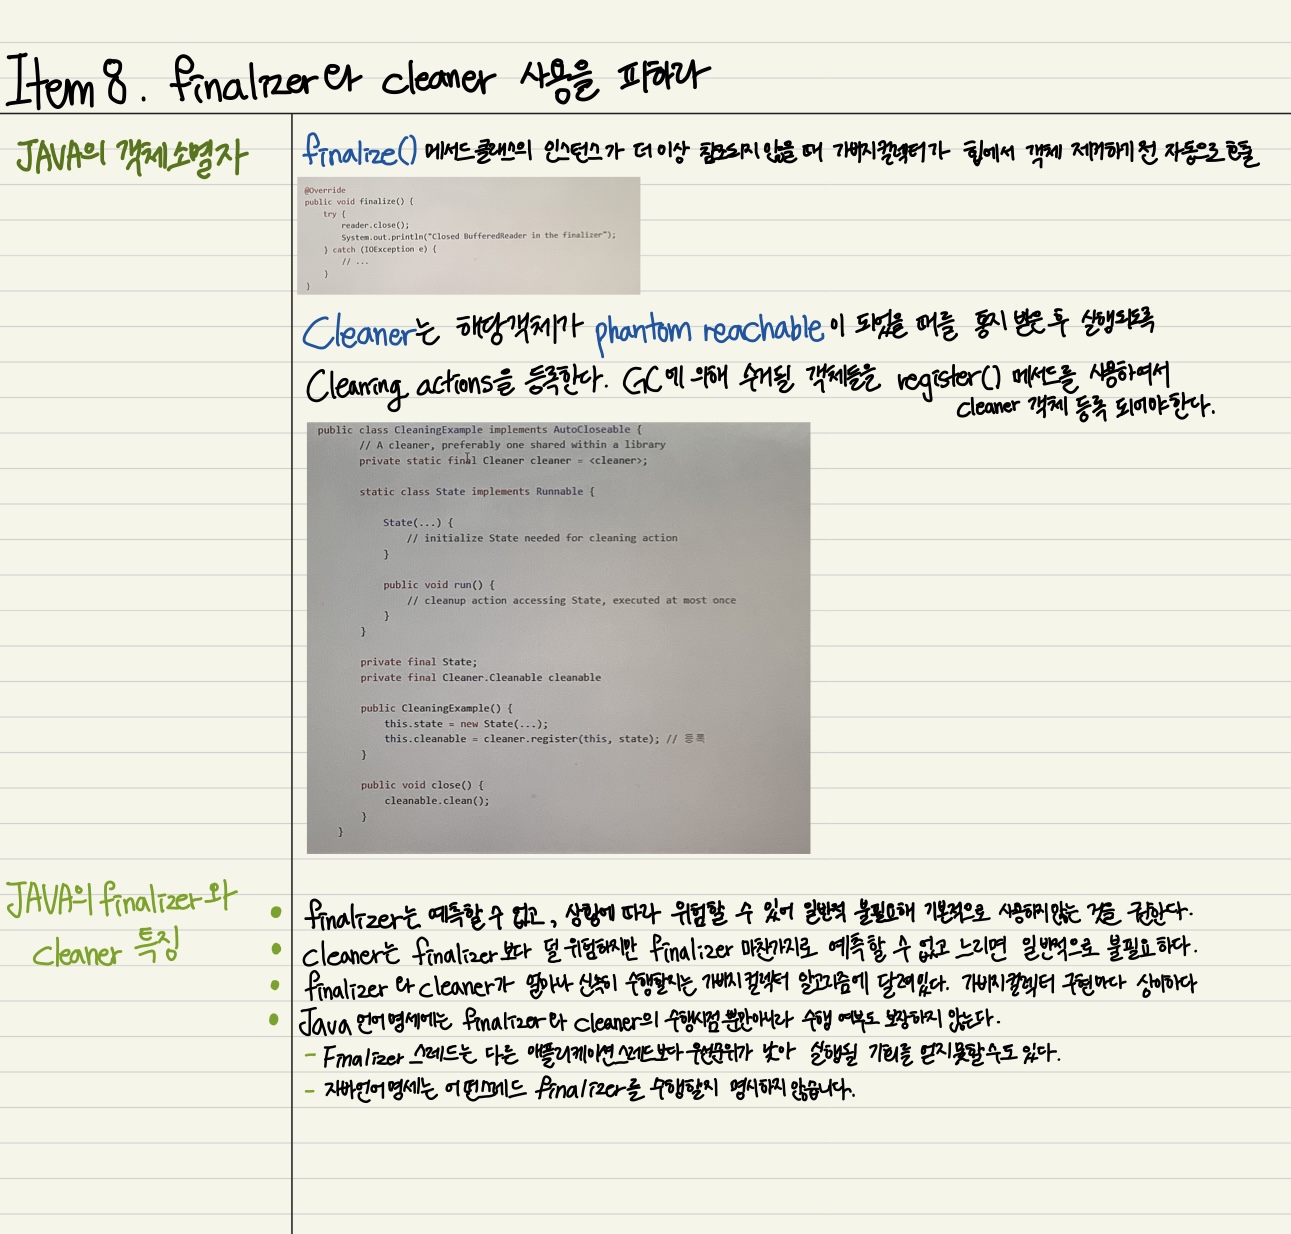 Item 8. finalizer와 cleaner 사용을 피하라
JAVA의 객체소멸자
finalize() 메서드 클래스의 인스턴스가 더이상 참조되지 않을 때 가비지컬렉터가 힙에서 객체 제거하기 전 자동으로 호출
@Override
public void finalize() {
try {
reader.close();
System.out.println("Closed BufferedReader in the finalizer");
} catch (IOException e) {
// ...
}
}
Cleaner는 해당객체가 phantom reachable이 되었을 때를 통지 받은 후 실행되도록
Cleaning actions을 등록한다. GC에 의해 수거될 객체들을 register() 메서드를 사용하여서
cleaner 객체 등록 되어야한다.
public class CleaningExample implements AutoCloseable {
// A cleaner, preferably one shared within a library
private static final Cleaner cleaner = <cleaner>;
static class State implements Runnable {
State(...) {
// initialize State needed for cleaning action
}
public void run() {
// cleanup action accessing State, executed at most once
}
}
private final State;
private final Cleaner.Cleanable cleanable
public CleaningExample() {
this.state = new State(...);
this.cleanable = cleaner.register(this, state); // 등록
}
public void close() {
cleanable.clean();
}
}
JAVA의 finalizer와
cleaner 특징
• finalizer는 예측할 수 없고, 상황에 따라 위험할 수 있어 일반적 불필요해 기본적으로 사용하지않는 것을 권한다.
• cleaner는 finalizer보다 덜 위험하지만 finalizer 마찬가지로 예측할 수 없고 느리며 일반적으로 불필요하다.
• finalizer와 cleaner가 얼마나 신속히 수행할지는 가비지컬렉터 알고리즘에 달려있다. 가비지컬렉터 구현마다 상이하다
• Java 언어명세에는 finalizer와 cleaner의 수행시점 뿐만아니라 수행 여부도 보장하지 않는다.
- Finalizer 스레드는 다른 애플리케이션 스레드보다 우선순위가 낮아 실행될 기회를 얻지못할수도 있다.
- 자바언어명세는 어떤스레드 finalizer를 수행할지 명시하지않습니다.